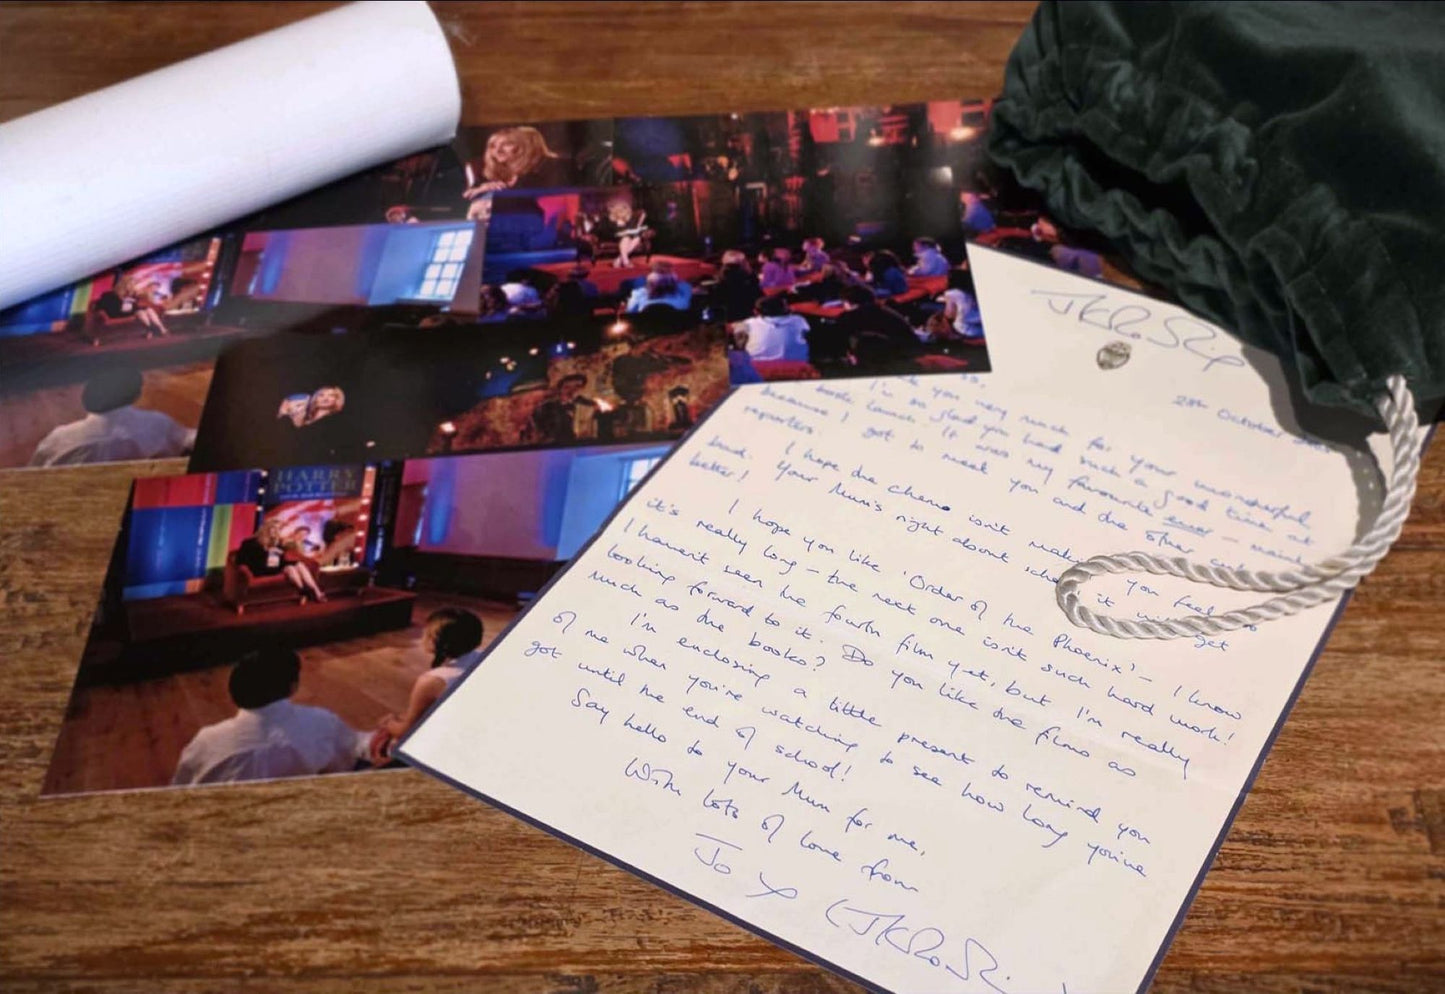 HARRY
POTTER
JKRowling
28th October
you very much for your wonderful
I'm so glad you had such a good time at
book launch. It was my favourite ever – mainly
because I got to meet you and the other cub
reporters.
I hope the chemo isn't making you feel
bad. Your Mum's right about school it will get
better!
I hope you like 'Order of the Phoenix' – I know
it's really long – the next one isn't such hard work!
I haven't seen the fourth film yet, but I'm really
looking forward to it. Do you like the films as
much as the books?
I'm enclosing a little present to remind you
of me when you're watching to see how long you've
got until the end of school!
Say hello to your Mum for me,
With lots of love from
Jo x (JKRowling